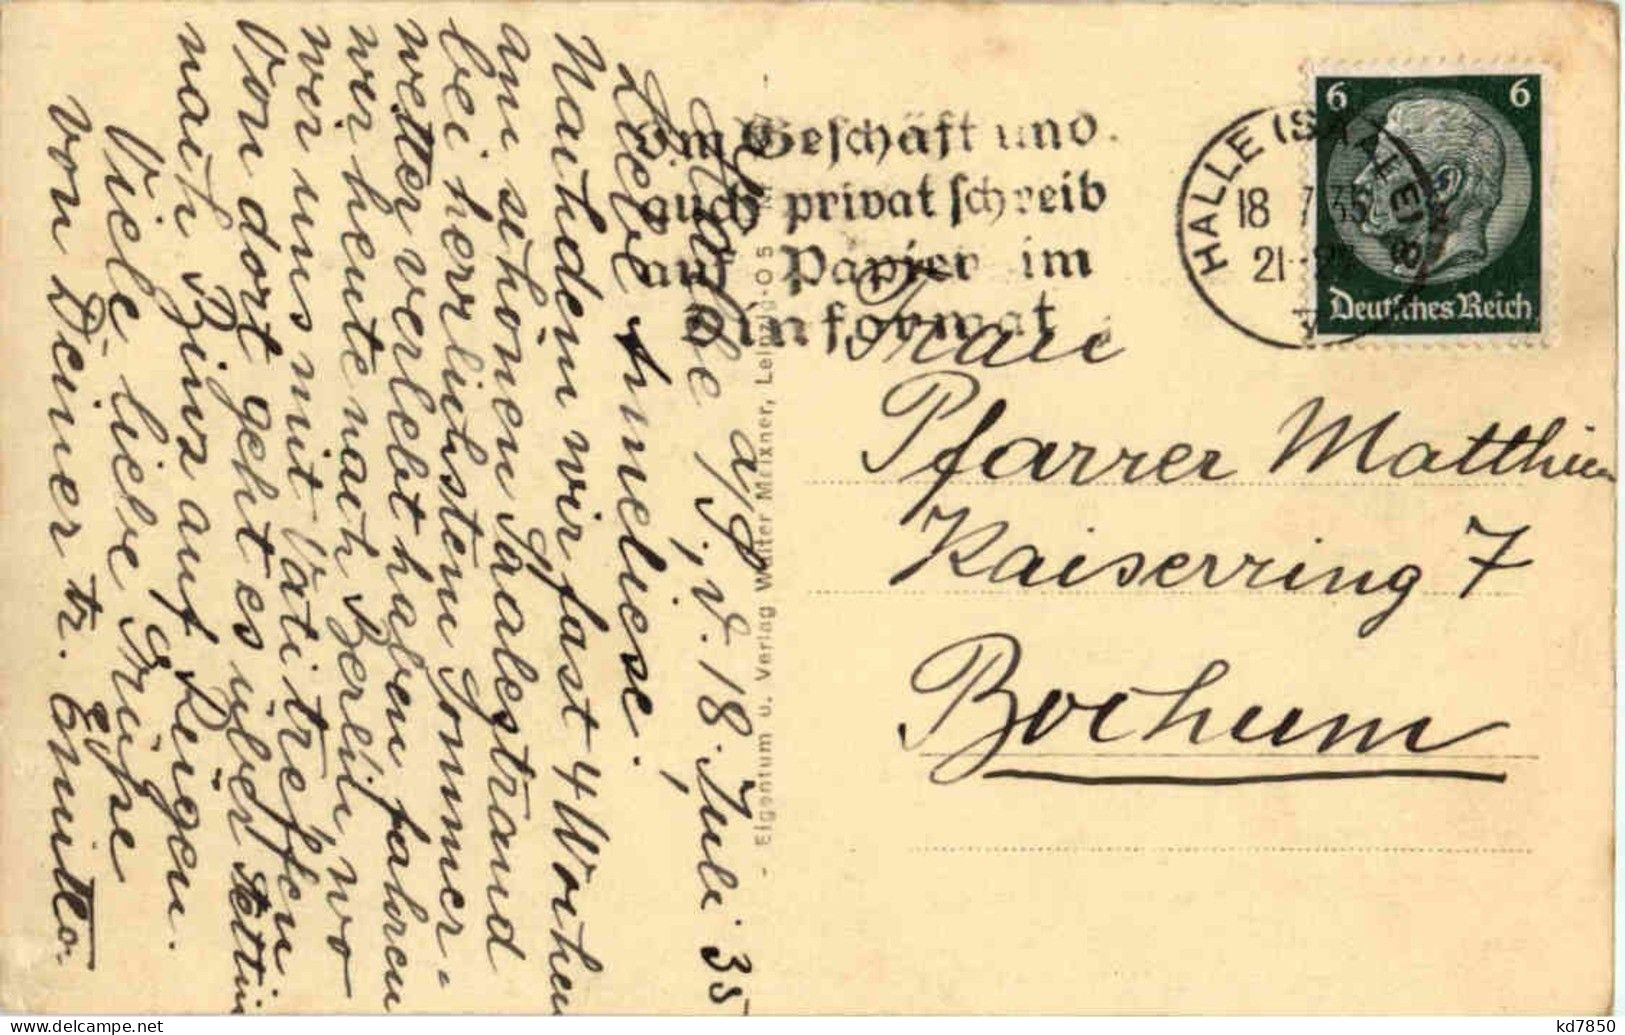 Halle a/S., d. 18. Juli 35
Liebe Anneliese.
Nachdem wir fast 4 Wochen
am schönen Saalestrand
bei herrlichstem Sommer-
wetter verlebt haben fahren
wir heute nach Berlin, wo
wir uns mit Vati treffen,
Von dort geht es über Stettin
nach Binz auf Rügen.
Viele liebe Grüße
von Deiner tr.
Im Geschäft und
auch privat schreib
auf Papier im
Dinformat
HALLE (SAALE)
18 7.35
21
6 6
Deutsches Reich
Frau
Pfarrer Matthieu
Kaiserring 7
Bochum
Eigentum u. Verlag Walter Meixner, Leipzig-O 5
kd7850